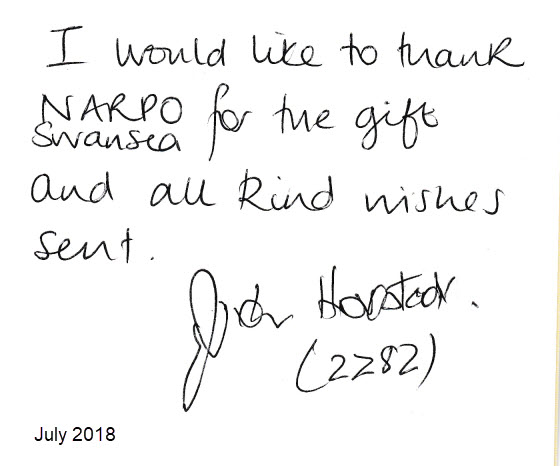 I would like to thank
NARPO
Swansea for the gift
and all kind wishes
sent.
(2282)
July 2018